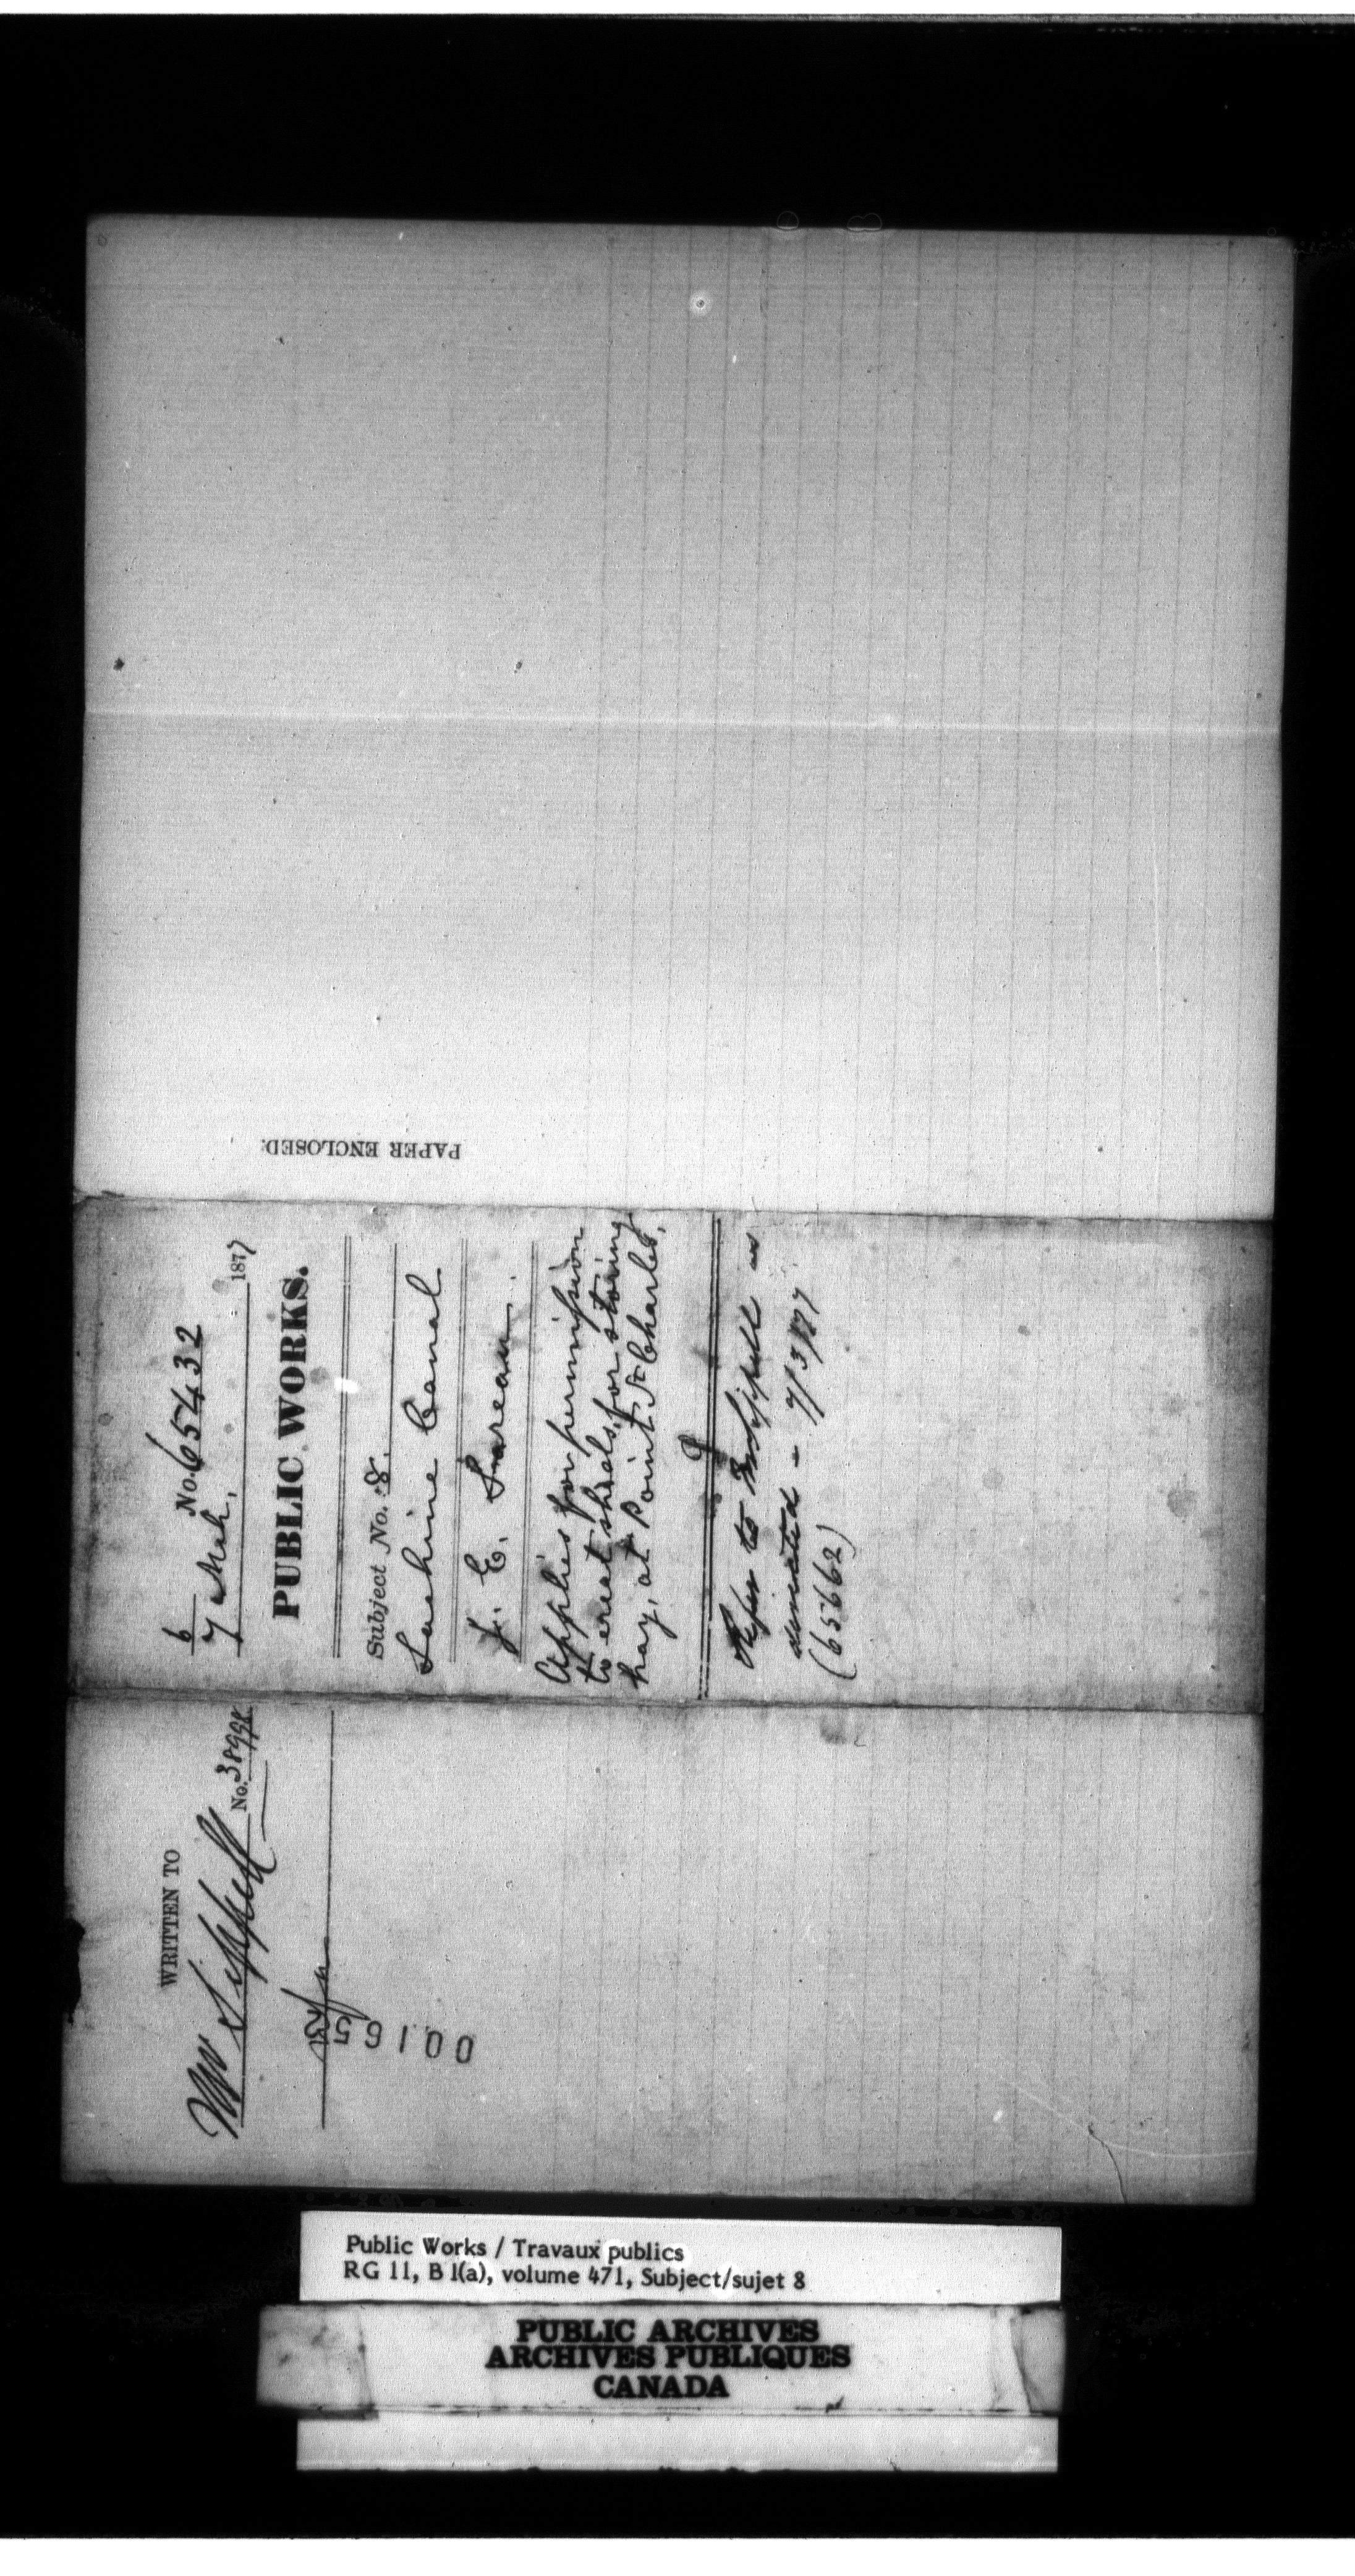 PAPER ENCLOSED.
No. 65432
6
7 Mch. 1877
PUBLIC WORKS.
Subject No. 8.
Lachine Canal
J. E. Lareau.
Applies for permission
to erect sheds, for storing
hay, at Point St Charles,
Refer to Mr Sippell as
directed - 7/3/77
(65662)
WRITTEN TO
Mr Sippell No. 38998
00165
Public Works / Travaux publics
RG 11, B 1(a), volume 471, Subject/sujet 8
PUBLIC ARCHIVES
ARCHIVES PUBLIQUES
CANADA